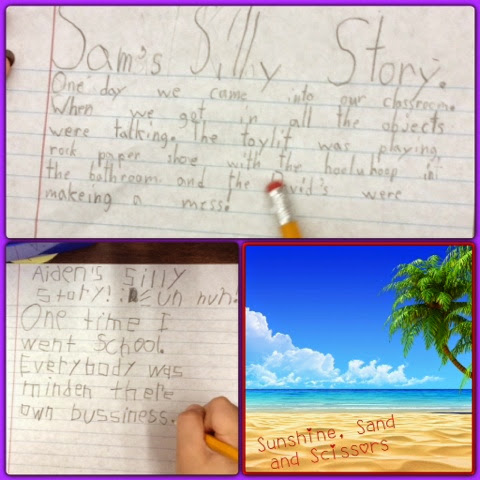 Sam's Silly Story.
One day we came into our classroom.
When we get in all the objects
were talking. The toylit was playing
rock paper shoe with the hooluhoop in
the bathroom and the David's were
makeing a mess!
Aiden's Silly
story! Un huh!
One time I
went School.
Everybody was
minden there
own bussiness.
Sunshine, Sand
and Scissors